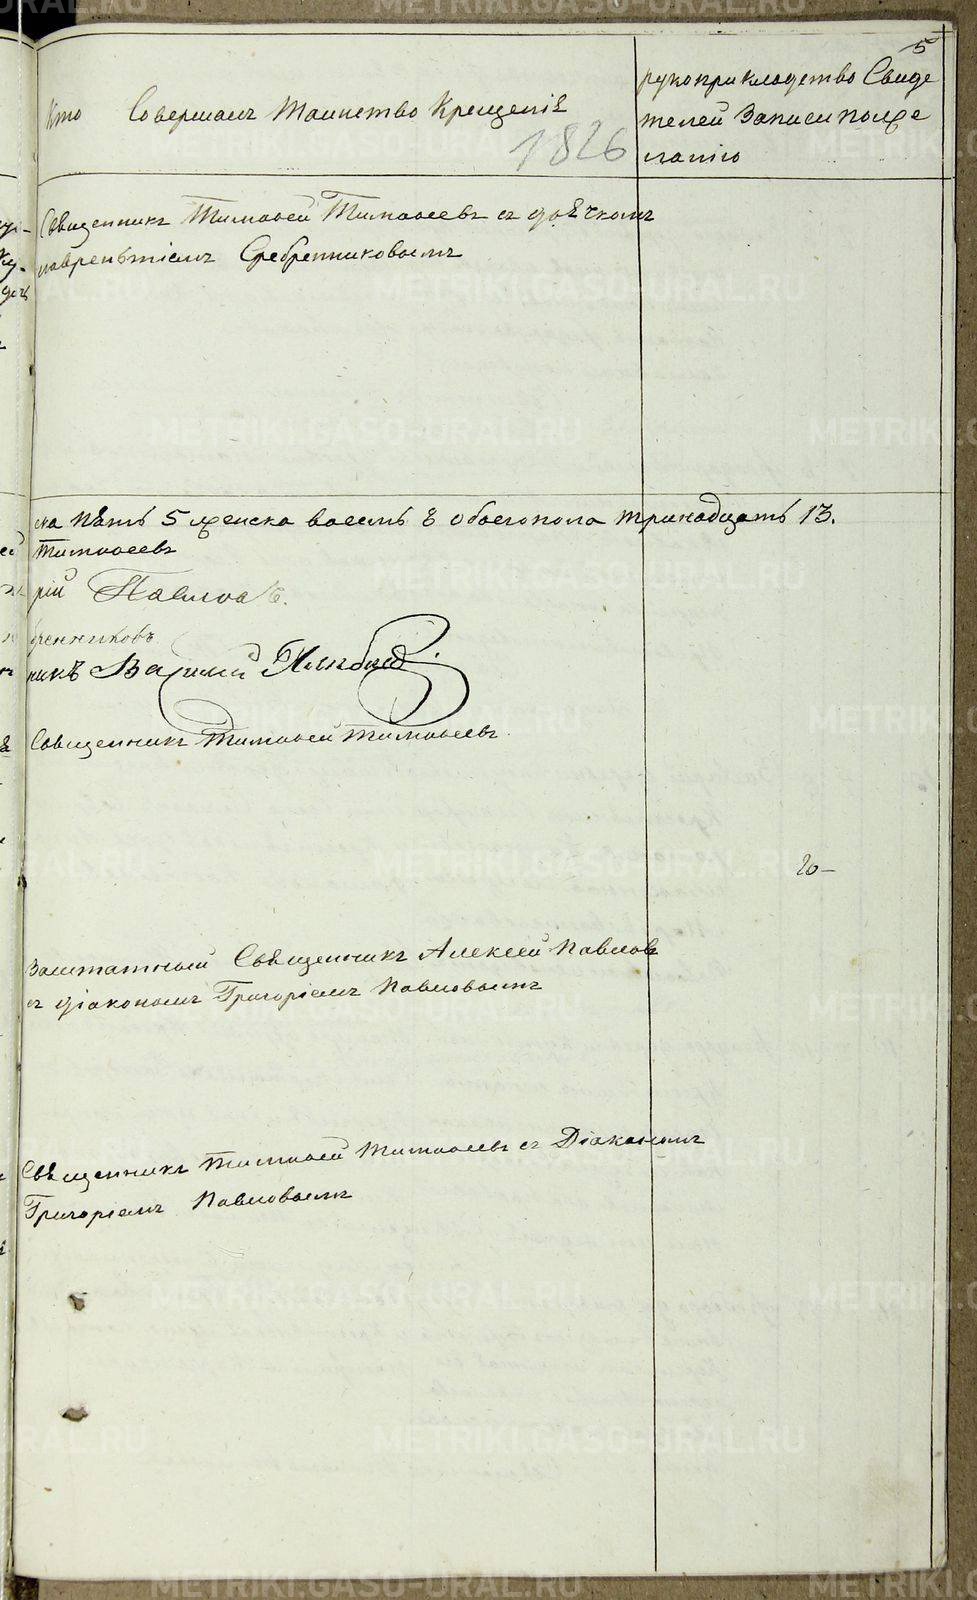 5
Кто Совершалъ Таинство Крещенiѣ
рукоприкладство Свиде
телей Записи поже
ланiю
1826
Священникъ Тимофей Тимофеевъ съ дьѣчкомъ
лаврентiемъ Сребренниковымъ
ка пѣть 5 женска восемь 8 обоего пола тринадцать 13.
Тимофеевъ
рiй Павловъ.
бренниковъ
никъ
Священникъ Тимофей Тимофеевъ.
20-
Заштатный Священникъ Алексей Павловъ
съ дiакономъ Григорiемъ Павловымъ
Священникъ Тимофей Тимофеевъ съ Дiакономъ
Григорiемъ Павловымъ
METRIKI.GASO-URAL.RU